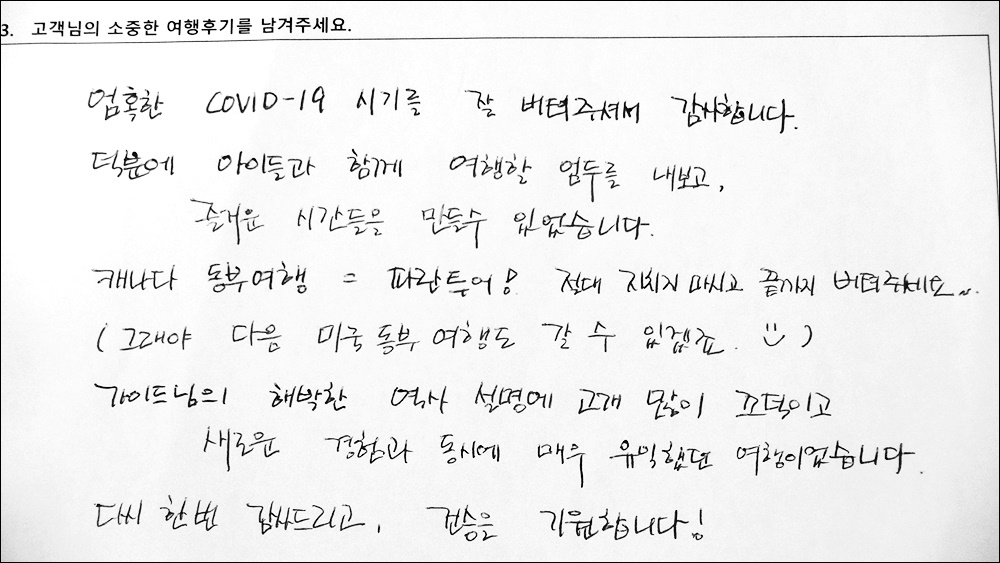 3. 고객님의 소중한 여행후기를 남겨주세요.
엄혹한 COVID-19 시기를 잘 버텨주셔서 감사합니다.
덕분에 아이들과 함께 여행할 엄두를 내보고,
즐거운 시간들을 만들수 있었습니다.
캐나다 동부여행 = 파란투어! 절대 지치지 마시고 끝까지 버텨주세요~
(그래야 다음 미국 동부 여행도 갈 수 있겠죠. :))
가이드님의 해박한 역사 설명에 고개 많이 끄덕이고
새로운 경험과 동시에 매우 유익했던 여행이었습니다.
다시 한번 감사드리고, 건승을 기원합니다!